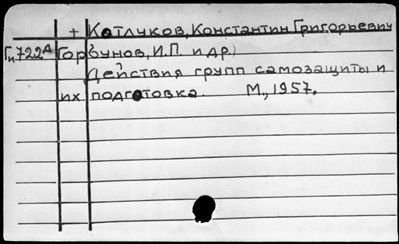 + Котлуков, Константин Григорьевич
Ги722А Горбунов, И.П. и др.)
Действия групп самозащиты и
их подготовка. М., 1957.